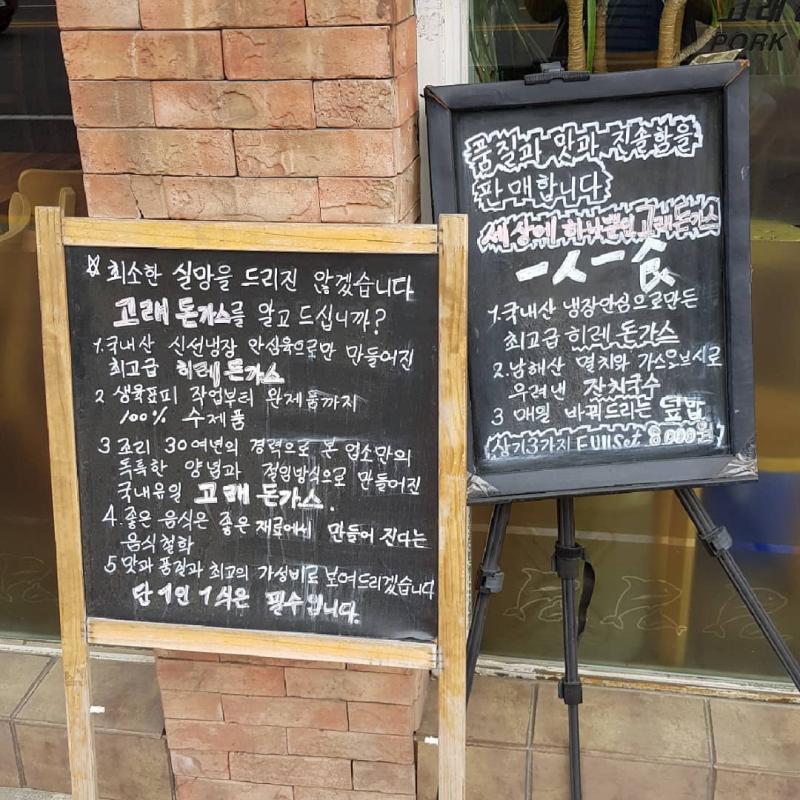 최소한 실망을 드리진 않겠습니다
고래 돈가스를 알고 드십니까?
1. 국내산 신선냉장 안심육으로만 만들어진
최고급 히레 돈가스
2 생육포피 작업부터 완제품까지
100% 수제품
3 조리 30여년의 경력으로 본 업소만의
독특한 양념과 절임방식으로 만들어진
국내유일 고래 돈가스.
4. 좋은 음식은 좋은 재료에서 만들어 진다는
음식철학
5 맛과 품질과 최고의 가성비로 보여드리겠습니다
단 1인 1식은 필수입니다.
PORK
품질과 맛과 진솔함을
판매합니다
세상에 하나뿐인 고래돈가스
一人一食
1. 국내산 냉장안심으로만든
최고급 히레 돈가스
2. 남해산 멸치와 가스오브시로
우려낸 잔치국수
3 매일 바꿔드리는 덮밥
상기3가지 Full Set 8000원